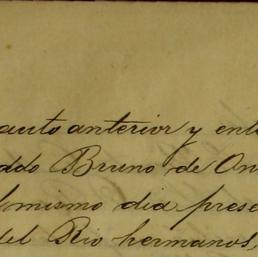 auto anterior y ent
ddo Bruno de On
l mismo dia prese
del Rio hermanos,